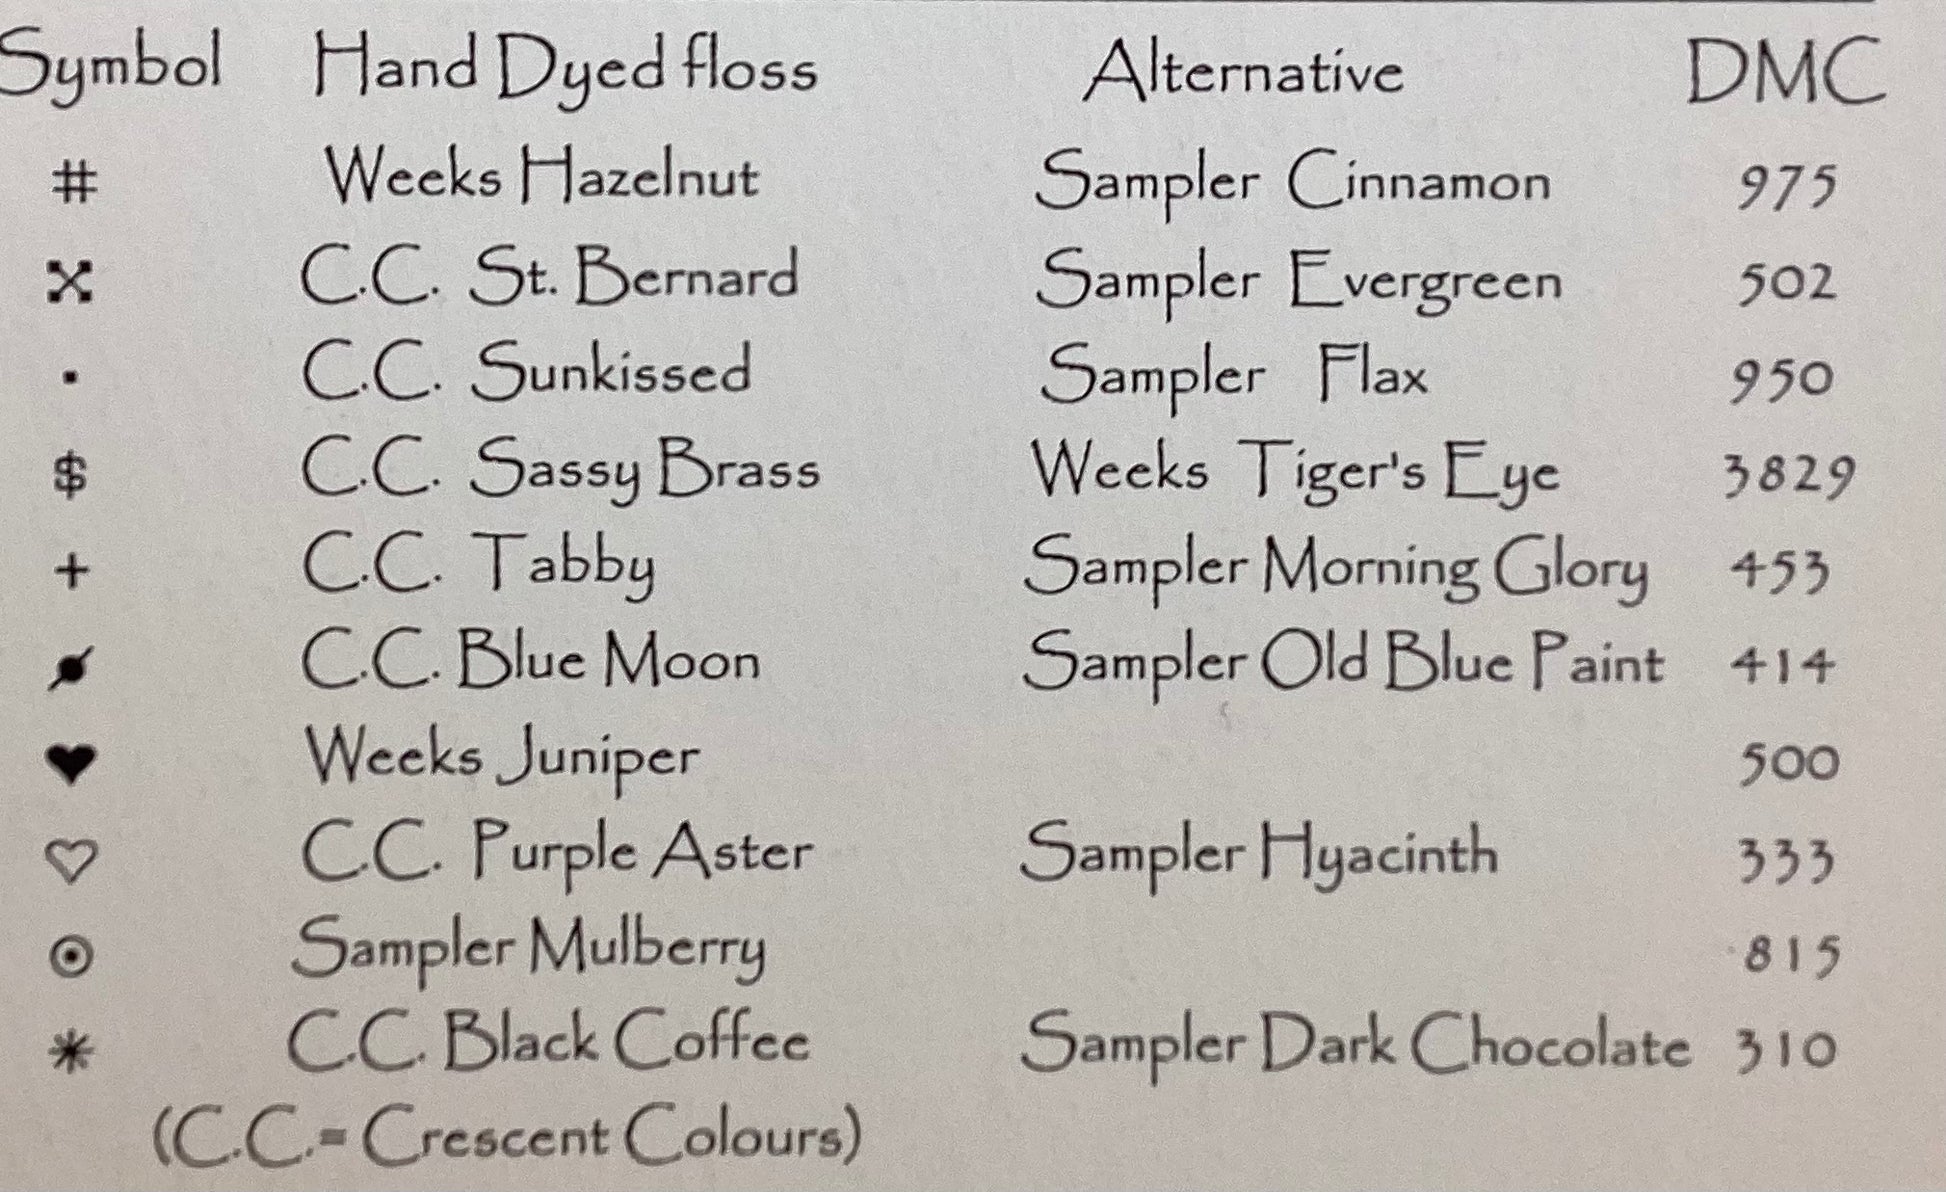 Symbol Hand Dyed floss Alternative DMC
# Weeks Hazelnut Sampler Cinnamon 975
C.C. St. Bernard Sampler Evergreen 502
· C.C. Sunkissed Sampler Flax 950
$ C.C. Sassy Brass Weeks Tiger's Eye 3829
+ C.C. Tabby Sampler Morning Glory 453
C.C. Blue Moon Sampler Old Blue Paint 414
♥ Weeks Juniper 500
♡ C.C. Purple Aster Sampler Hyacinth 333
⊙ Sampler Mulberry 815
* C.C. Black Coffee Sampler Dark Chocolate 310
(C.C.= Crescent Colours)